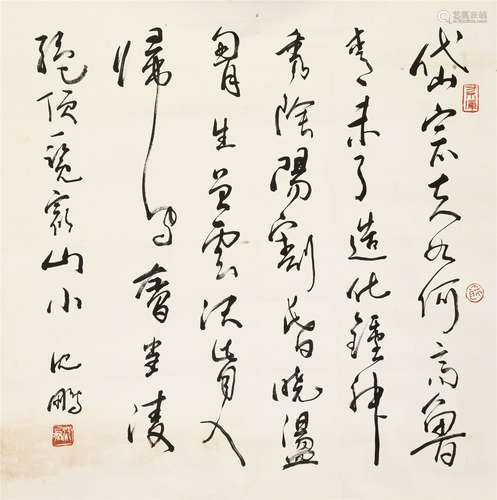 岱宗夫如何齊魯
青未了造化鍾神
秀陰陽割昏曉盪
胸生曾雲決眥入
歸鳥會當凌
絕頂一覽眾山小 沈鵬